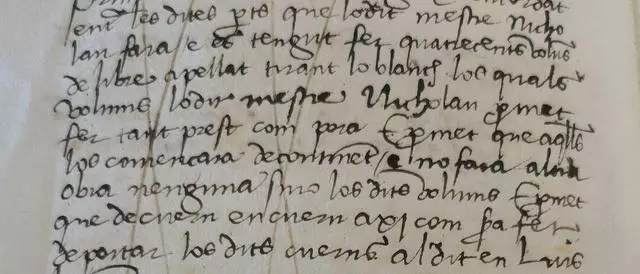 ent les dites pts que lo dit mestre Nicho
lau fara e es tengut fer quatrecents volũs
de libre apellat tirant lo blanch los quals
volums lo dit mestre Nicholau pmet
fer tant prest com pora E pmet que aqlls
los comencara de continẽt e no fara altra
obra nenguna sino los dits volums E pmet
que de cuern en cuern axi com fer
de portar los dits cuerns al dit en Luis